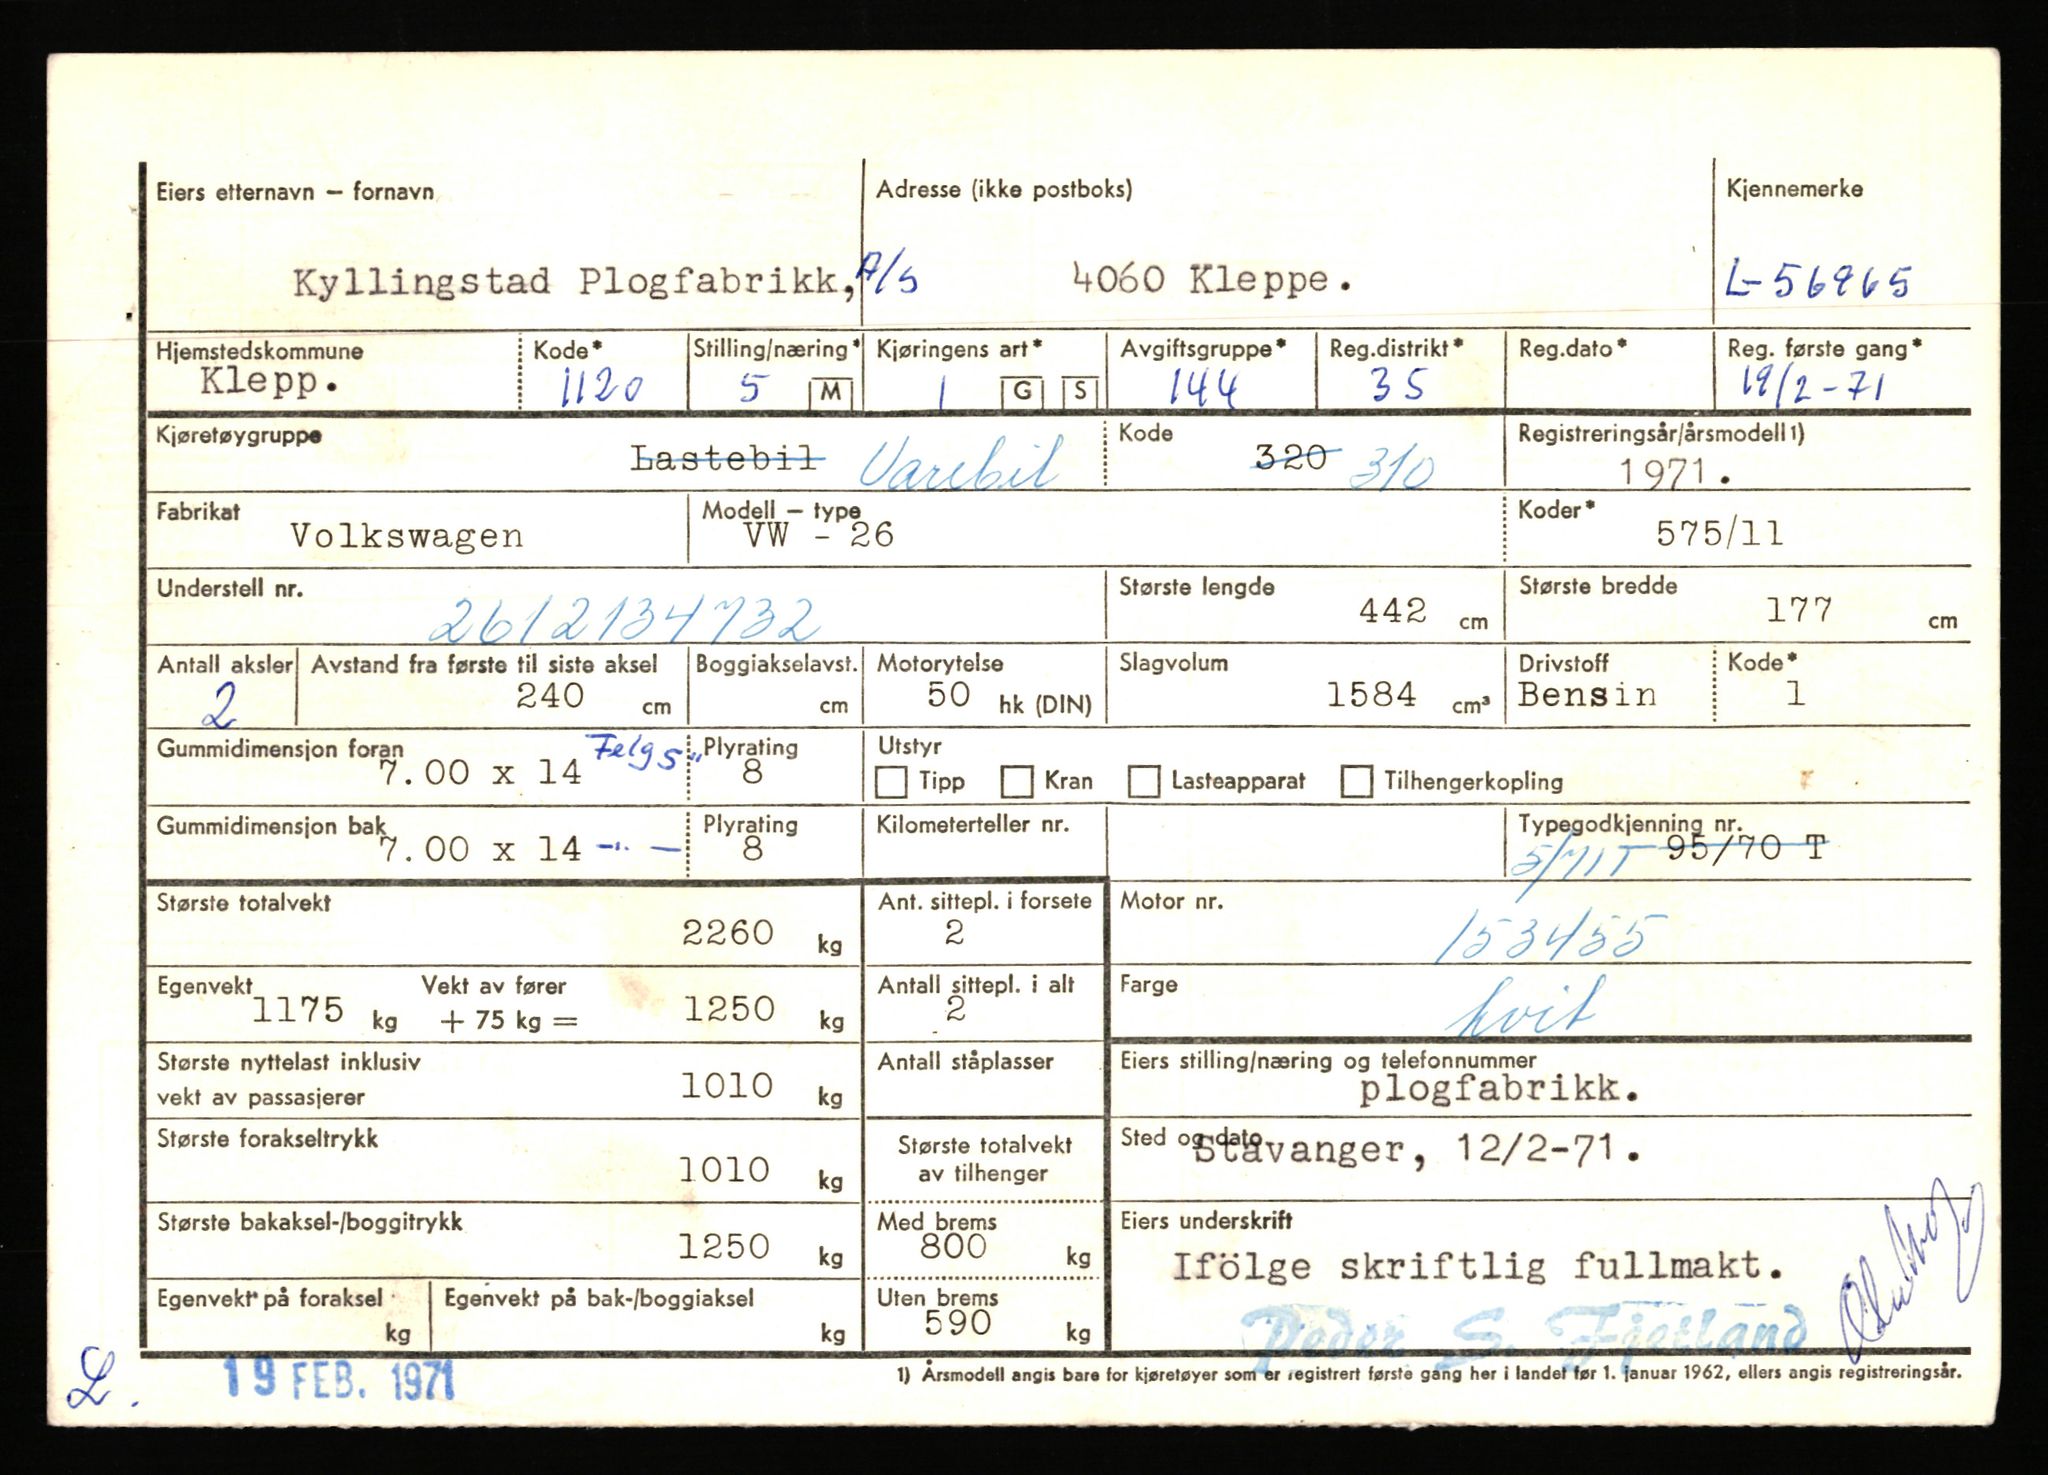 Eiers etternavn — fornavn Adresse (ikke postboks) Kjennemerke
Kyllingstad Plogfabrikk, A/S 4060 Kleppe. L-56965
Hjemstedskommune Kode* Stilling/næring* Kjøringens art* Avgiftsgruppe* Reg.distrikt* Reg.dato* Reg. første gang*
Klepp. 1120 5 M 1 G S 144 35 19/2-71
Kjøretøygruppe Lastebil Varebil Kode 320 310 Registreringsår/årsmodell1)
1971.
Fabrikat Modell — type Koder*
Volkswagen VW - 26 575/11
Understell nr. Største lengde Største bredde
2612134732 442 cm 177 cm
Antall aksler Avstand fra første til siste aksel Boggiakselavst. Motorytelse Slagvolum Drivstoff Kode*
2 240 cm cm 50 hk (DIN) 1584 cm³ Bensin 1
Gummidimensjon foran Felg 5" Plyrating Utstyr
7.00 x 14 8 Tipp Kran Lasteapparat Tilhengerkopling
Gummidimensjon bak Plyrating Kilometerteller nr. Typegodkjenning nr.
7.00 x 14 -"- 8 5/71T 95/70 T
Største totalvekt Ant. sittepl. i forsete Motor nr.
2260 kg 2 153455
Egenvekt Vekt av fører Antall sittepl. i alt Farge
1175 kg + 75 kg = 1250 kg 2 hvit
Største nyttelast inklusiv Antall ståplasser Eiers stilling/næring og telefonnummer
vekt av passasjerer 1010 kg plogfabrikk.
Største forakseltrykk Største totalvekt Sted og dato
1010 kg av tilhenger Stavanger, 12/2-71.
Største bakaksel-/boggitrykk Med brems Eiers underskrift
1250 kg 800 kg Ifölge skriftlig fullmakt.
Egenvekt på foraksel Egenvekt på bak-/boggiaksel Uten brems
kg kg 590 kg Peder S. Fjetland
L. 19 FEB. 1971 1) Årsmodell angis bare for kjøretøyer som er registrert første gang her i landet før 1. januar 1962, ellers angis registreringsår.